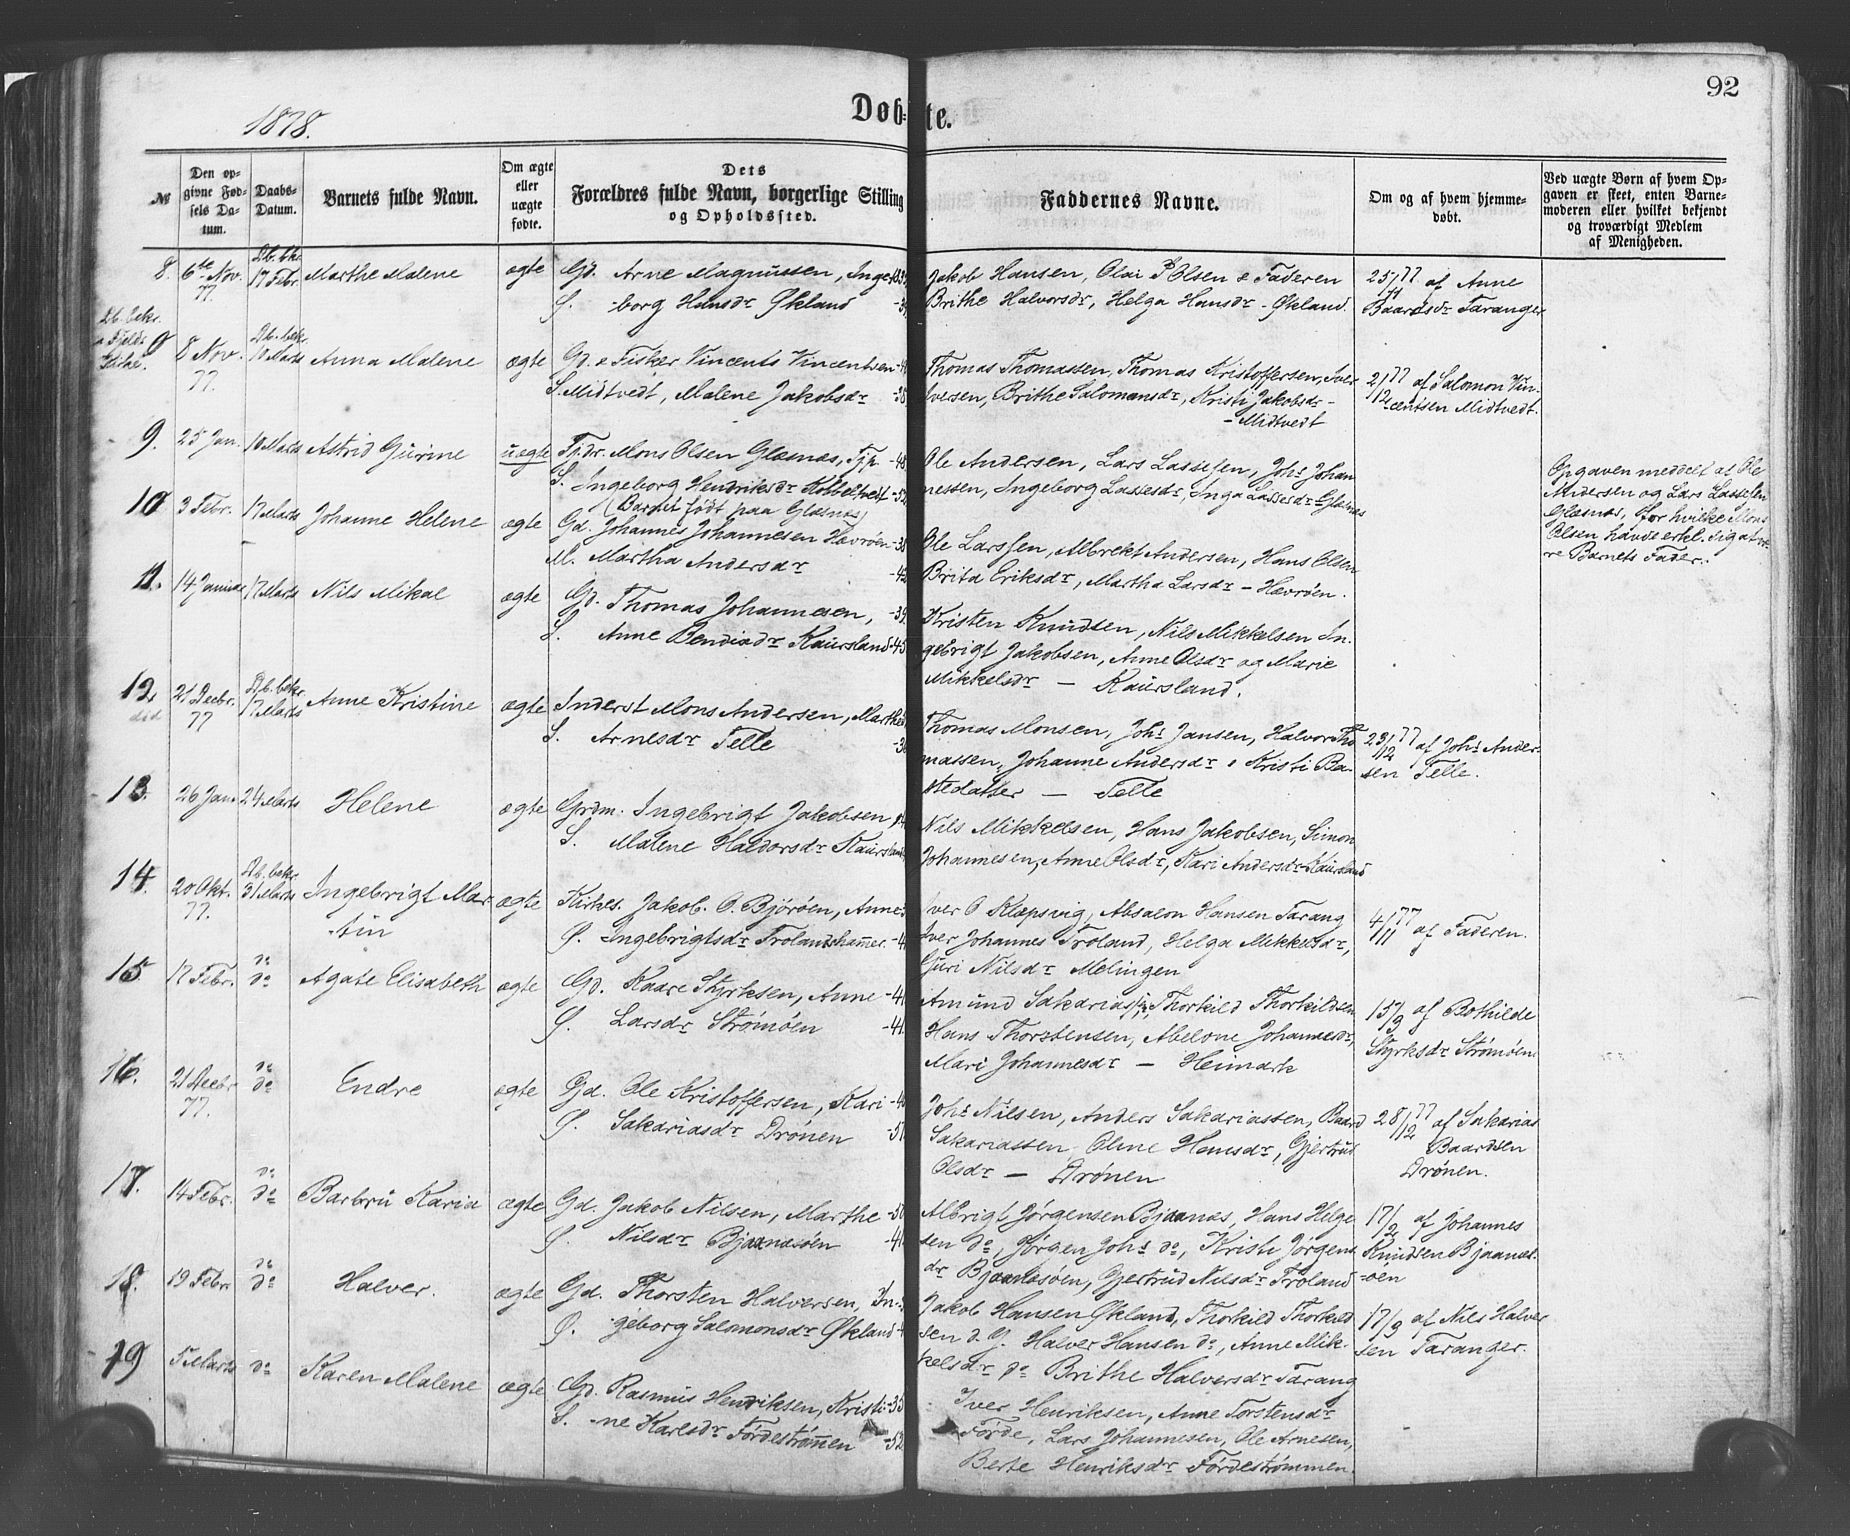 92
1878.
Døb-te.
№
Den op-
givne Fød-
sels Da-
tum.
Daabs-
Datum.
Barnets fulde Navn.
Om ægte
eller
uægte
fødte.
Dets
Forældres fulde Navn, borgerlige Stilling
og Opholdssted.
Faddernes Navne.
Om og af hvem hjemme-
døbt.
Ved uægte Børn af hvem Op-
gaven er skeet, enten Barne-
moderen eller hvilket bekjendt
og troværdigt Medlem
af Menigheden.
8. 6te Nov. 77. 17 Febr. Marthe Malene ægte Gd. Arne Magnussen, Inge-
borg Hansdr Økland
Jakob Hansen, Olai P Olsen & Faderen
Brithe Halvorsdr, Helga Hansdr - Økland.
25/11 77 af Anne
Baardsdr Taranger
Db. bekr.
i Fjelds
Kirke.
9 8 Nov. 77 Db. bekr. 10 Marts Anna Malene ægte Gd. & Fisker Vincents Vincentsen
S. Midtvedt, Malene Jakobsdr -38
Thomas Thomassen, Thomas Kristoffersen, Iver
Iversen, Brithe Salomonsdr, Kristi Jakobsdr -
- Midtvedt
2/12 77 af Salomon Vin-
centsen Midtvedt.
9. 25 Jan. 10 Marts Astrid Gurine uægte Tj.dr. Mons Olsen Glæsnæs, Tjp. -48
S. Ingeborg Hendriksdr Kobbeltvedt -52
(Barnet født paa Glæsnæs)
Ole Andersen, Lars Lassesen, Johs Johan-
nessen, Ingeborg Lassesdr, Inga Lassesdr Glæsnæs
Opgaven meddelt af Ole
Andersen og Lars Lassesen
Glæsnæs, for hvilke Mons
Olsen havde erkl. sig at væ-
re Barnets Fader.
10 3 Febr. 17 Marts Johanne Helene ægte Gd. Johannes Johannesen Hævrøen -38
M. Martha Andersdr -42
Ole Larssen, Albrekt Andersen, Hans Olsen
Brita Eriksdr, Martha Larsdr - Hævrøen.
11. 14 Januar 17 Marts Nils Mikal ægte Gd. Thomas Johannesen, -39.
S. Anne Bendiksdr Kaursland -45
Kristen Knudsen, Nils Mikkelsen In-
gebrigt Jakobsen, Anne Olsdr og Marie
Mikkelsdr - Kaursland.
12. 21 Decbr. 77 Db. bekr. 17 Marts Anne Kristine ægte Inderst Mons Andersen, Marthe
S. Arnesdr Telle
Thomas Monsen, Johs Jansen, Halvor Tho-
massen, Johanne Andersdr & Kristi Ba-
stedatter - Telle
23/12 77 af Johs Ander-
sen Telle.
13. 26 Jan. 24 Marts Helene ægte Grdm. Ingebrigt Jakobsen
S. Malene Haldorsdr Kaursland
Nils Mikkelsen, Hans Jakobsen, Simon
Johannesen, Anne Olsdr, Kari Andersdr Kaursland
14. 20 Okt. 77. Db. bekr. 31 Marts Ingebrigt Mar-
tin ægte Kirkes. Jakob. O. Bjørøen, Anne
Ø. Ingebrigtsdr Trolandshamer.
Iver O Klepsvig, Absalon Hansen Tarang
Iver Johannes Troland, Helga Mikkelsdr,
Guri Nilsdr Melingen
4/11 77 af Faderen.
15 17 Febr. do Agate Elisabeth ægte Gd. Kaare Styrksen, Anne
Ø. Larsdr Strømøen -44.
Amund Sakariassen, Thorkild Thorkildsen
Hans Thorstensen, Abelone Johannesdr,
Mari Johannesdr - Heimark
15/3 af Bothilde
Styrksdr Strømøen.
16. 21 Decbr 77. do Endre ægte Gd. Ole Kristoffersen, Kari
Ø. Sakariasdr Drönen
Johs Nilsen, Anders Sakariassen, Baard
Sakariassen Oline Hansdr, Gjertrud
Olsdr - Drönen
28/12 77 af Sakarias
Baardsen
Drönen.
17. 14 Febr. do Barbru Karia ægte Gd. Jakob Nilsen, Marthe
Ø. Nilsdr Bjaanæsøen
Albrigt Jørgensen Bjaanæs, Hans Helge-
sen do, Jørgen Johs do, Kristi Jørgens
dr Bjaanæsøen, Gjertrud Nilsdr Troland
17/2 af Johannes
Knudsen Bjaanæs-
øen
18. 19 Febr. do Halver. ægte Gd. Thorsten Halversen, In-
Ø. geborg Salomonsdr Økland
Jakob Hansen Økland, Thorkild Thorkild-
sen d. Y. Halver Hansen do, Anne Mik-
kelsdr do Brithe Halversdr Tarang
17/3 af Nils Halver
sen Taranger.
19 5 Marts do Karen Malene ægte Gd. Rasmus Henriksen, Kristi- -35
S. ne Karlsdr Førdestrømmen -52
Iver Henriksen, Anne Torstensdr
Førde, Lars Johannesen, Ole Arnesen,
Berte Henriksdr Førdestrømmen.